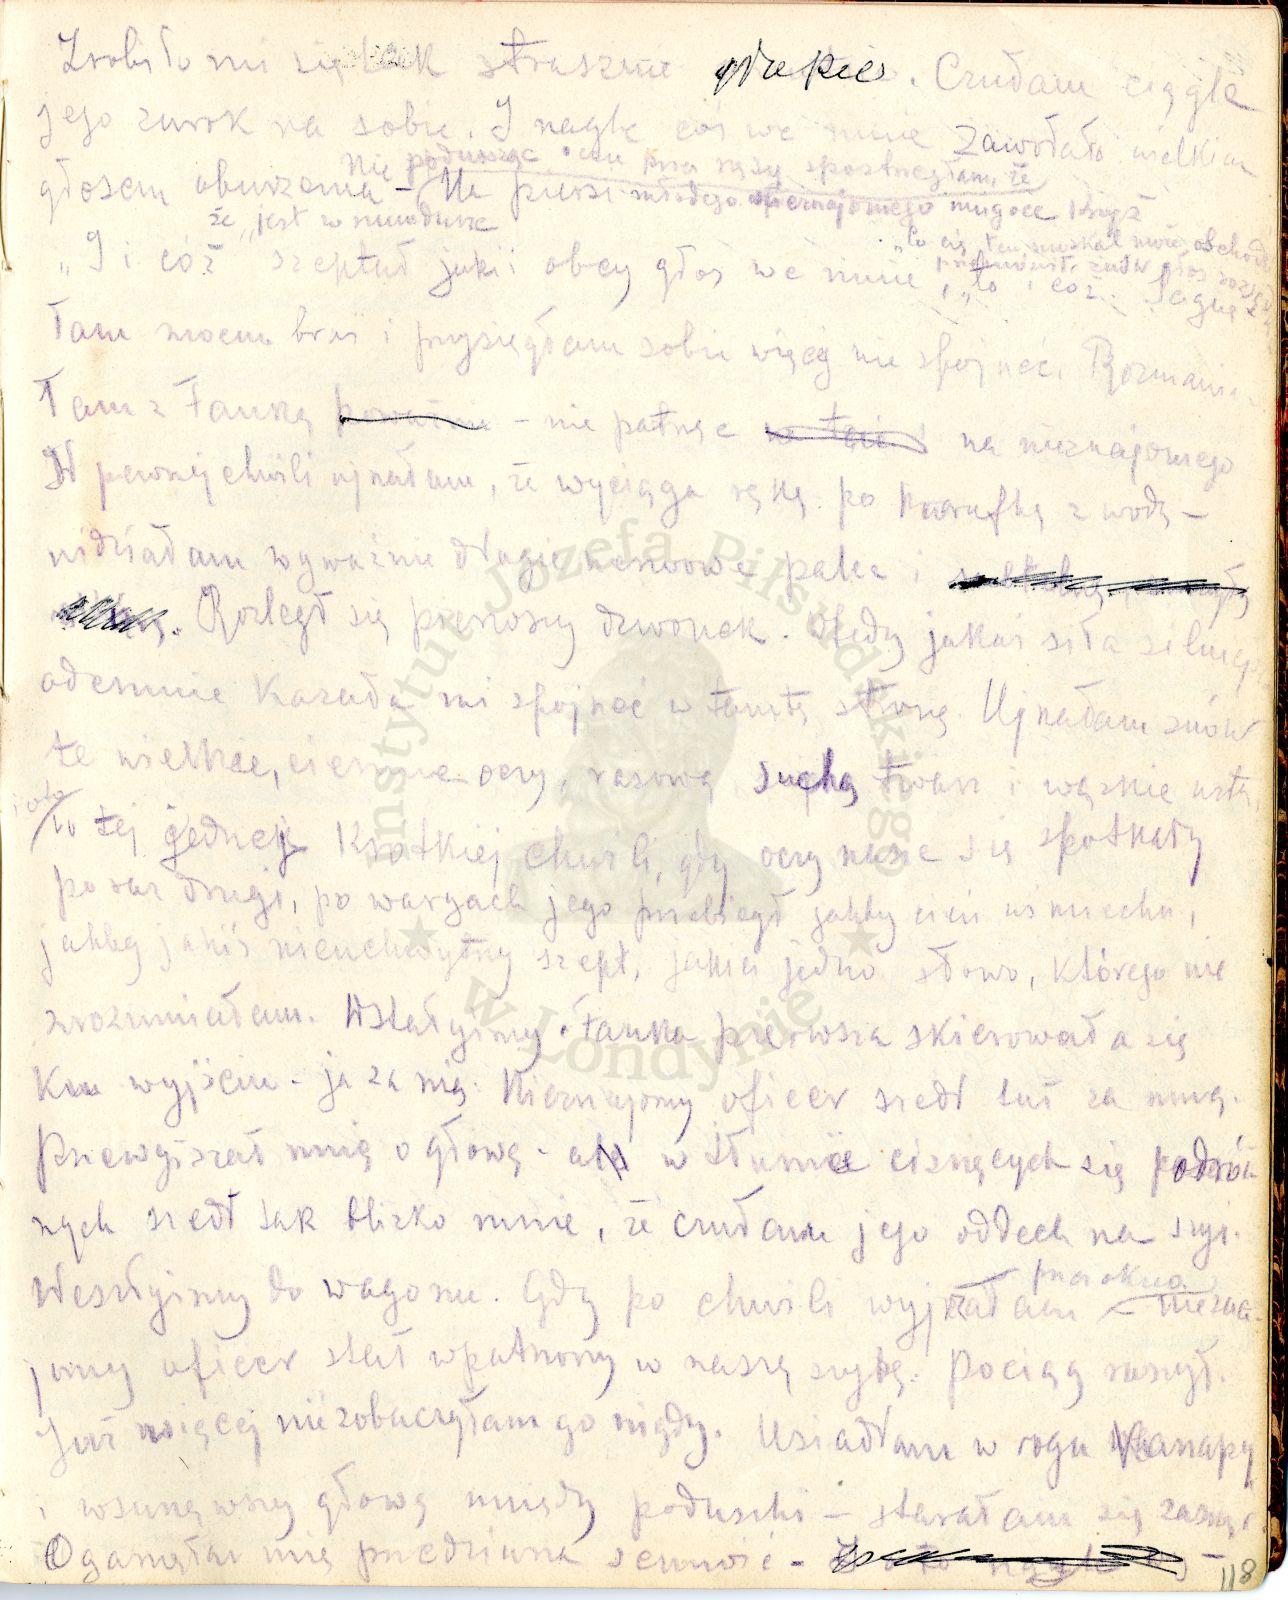 Zrobiło mi się tak strasznie gdzieś. Czułam ciągle
jego wzrok na sobie. I nagle coś we mnie zawołało wielkim
Nie podnosząc oczu przez rzęsy spostrzegłam, że
głosem oburzenia – Na piersi młodego nieznajomego migoce krzyż
że „jest w mundurze
„Co cię ten moskal może obchodzić
„I i cóż szeptał jakiś obcy głos we mnie, „to i cóż.
łam mocno brwi i przysięgłam sobie więcej nie spojrzeć. Rozmawia-
łam z Tanką – nie patrząc na nieznajomego
W pewnej chwili ujrzałam, że wyciąga rękę po karafkę z wodą –
widziałam wyraźnie długie nerwowe palce i
Rozległ się pierwszy dzwonek. Wtedy jakaś siła silniejsza
odemnie kazała mi spojrzeć w tamtą stronę. Ujrzałam znów
te wielkie, ciemne oczy, rasową suchą twarz i wąskie usta,
i oto
w tej jednej krótkiej chwili, gdy oczy nasze się spotkały
po raz drugi, po wargach jego przebiegł jakby cień uśmiechu,
jakby jakiś nieuchwytny szept, jakieś jedno słowo, którego nie
zrozumiałam. Wstałyśmy. Tanka pierwsza skierowała się
ku wyjściu – ja za nią. Nieznajomy oficer szedł tuż za mną.
Przewyższał mnie o głowę – ale w tłumie cisnących się podróż
nych szedł tak blizko mnie, że czułam jego oddech na szyi.
Weszłyśmy do wagonu. Gdy po chwili wyjrzałam przez okno niezna-
jomy oficer stał wpatrzony w naszą szybę. Pociąg ruszył.
Już więcej nie zobaczyłam go nigdy. Usiadłam w rogu kanapy
i wsunąwszy głowę między poduszki – starałam się zasnąć.
Ogarnęła mię przedziwna senność –
118
Instytut Józefa Piłsudskiego
w Londynie